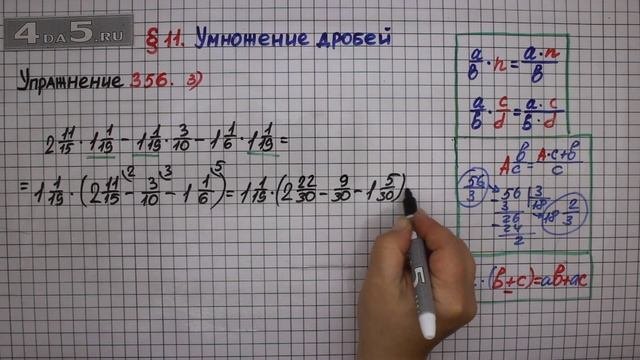 4DA5.RU
§ 11. Умножение дробей
Упражнение 356. з)
2 11/15 · 1 1/19 - 1 1/19 · 3/10 - 1 1/6 · 1 1/19 =
= 1 1/19 · (2 11/15 - 3/10 - 1 1/6) = 1 1/19 · (2 22/30 - 9/30 - 1 5/30)
2 3 5
a/b · n = a·n/b
a/b · c/d = a·c/b·d
A b/c = A·c+b/c
56/3
56 | 3
- 3 18
26
- 24
2
18 2/3
· (b+c)=ab+ac